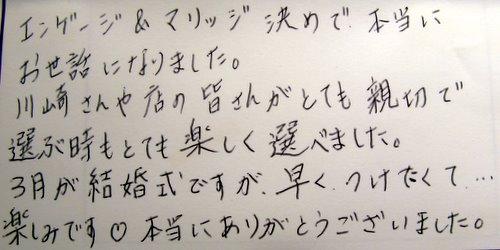 エンゲージ & マリッジ 決めで 本当に
お世話になりました。
川崎さんや店の皆さんがとても 親切で
選ぶ時もとても 楽しく 選べました。
3月が 結婚式ですが、早く つけたくて…
楽しみです♡ 本当にありがとうございました。